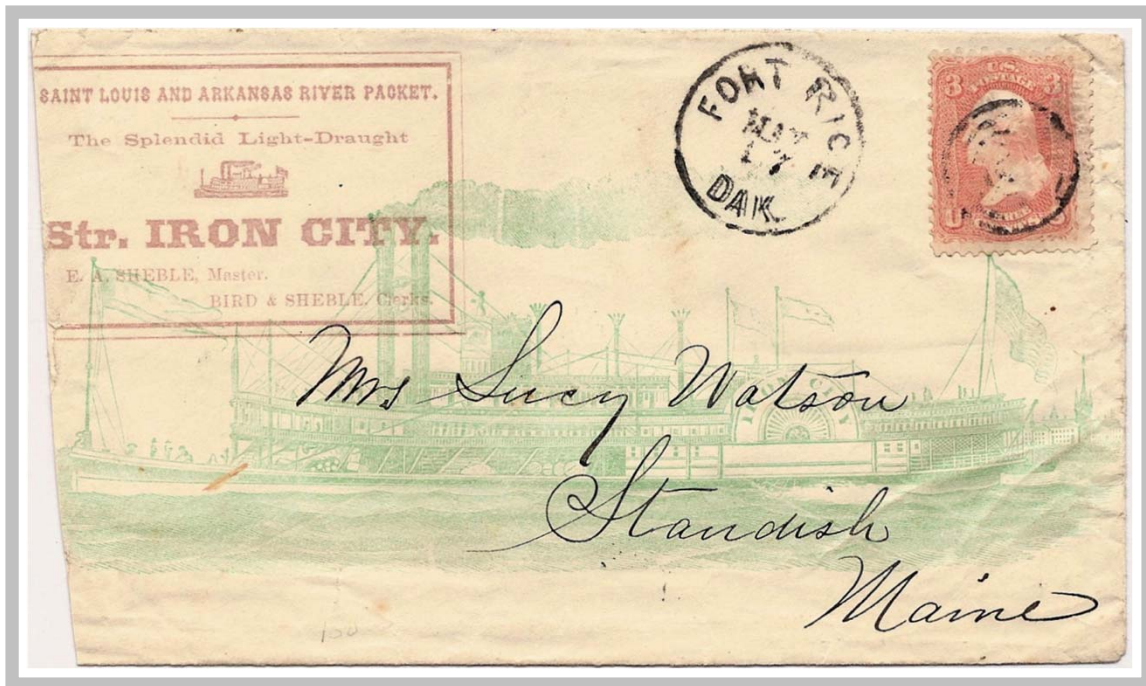 SAINT LOUIS AND ARKANSAS RIVER PACKET.
The Splendid Light-Draught
Str. IRON CITY.
E. A. SHEBLE, Master.
BIRD & SHEBLE. Clerks.
FORT RICE
DAK.
3 U.S. 3
POSTAGE
IRON CITY
Mrs Lucy Watson
Standish
Maine